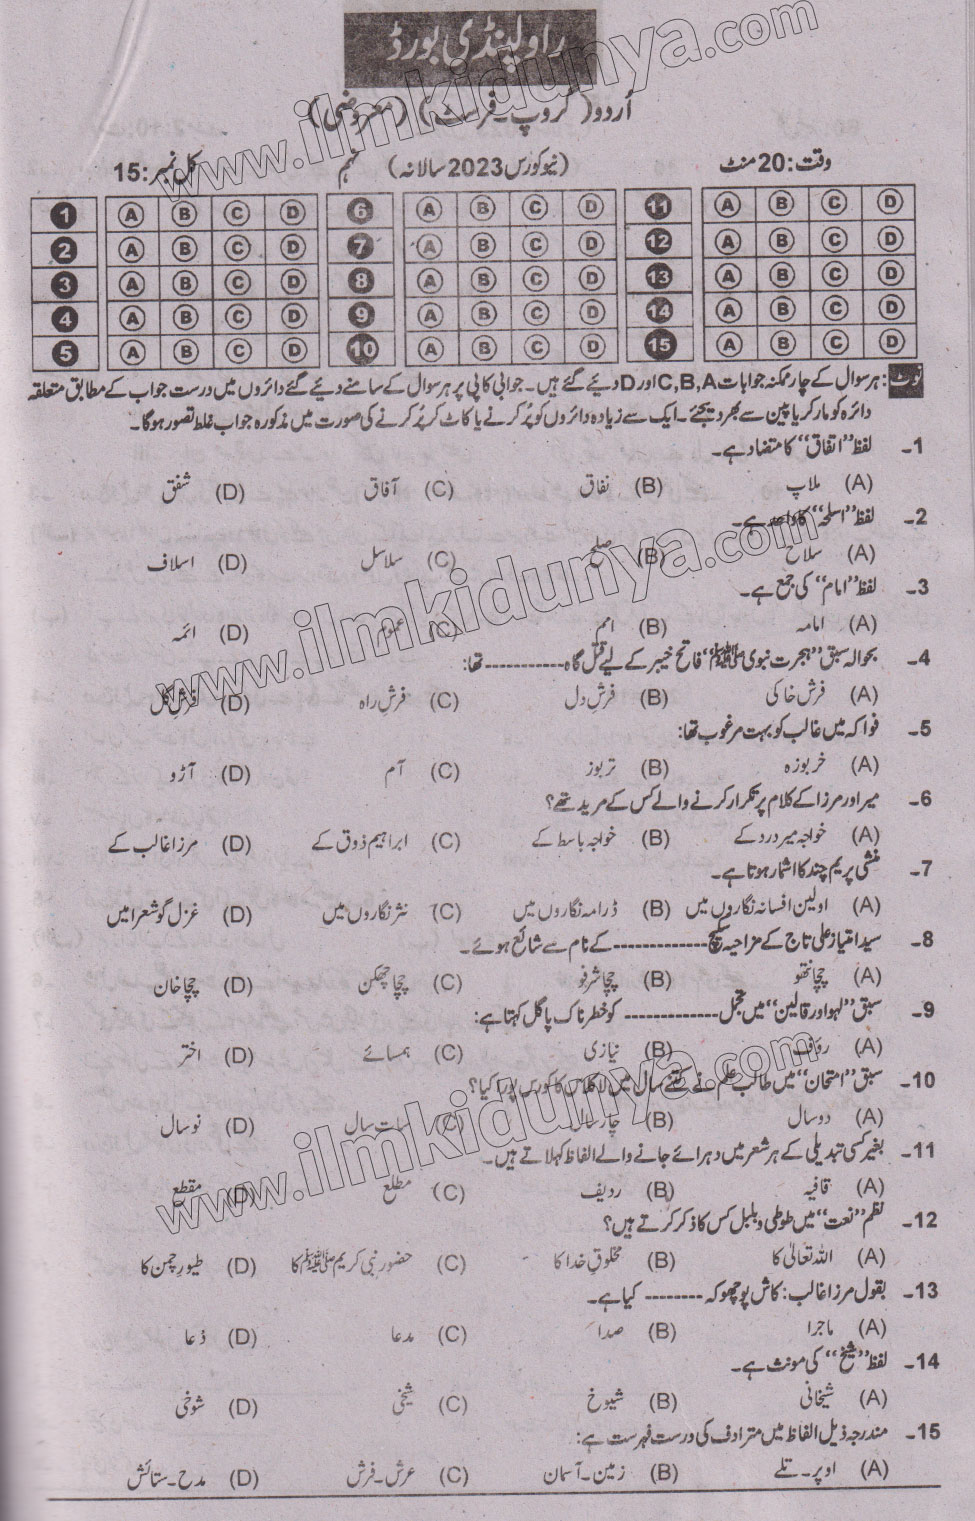 راولپنڈی بورڈ
اُردو (گروپ۔فرسٹ) (معروضی)
وقت: 20 منٹ (نیو کورس 2023 سالانہ) نہم کل نمبر: 15
1 A B C D 6 A B C D 11 A B C D
2 A B C D 7 A B C D 12 A B C D
3 A B C D 8 A B C D 13 A B C D
4 A B C D 9 A B C D 14 A B C D
5 A B C D 10 A B C D 15 A B C D
نوٹ: ہر سوال کے چار ممکنہ جوابات C,B,A اور D دیئے گئے ہیں۔ جوابی کاپی پر ہر سوال کے سامنے دیئے گئے دائروں میں درست جواب کے مطابق متعلقہ
دائرہ کو مارکر یا پین سے بھر دیجئے۔ ایک سے زیادہ دائروں کو پُر کرنے یا کاٹ کر پُر کرنے کی صورت میں مذکورہ جواب غلط تصور ہوگا۔
1۔ لفظ "اتفاق" کا متضاد ہے۔
(A) ملاپ (B) نفاق (C) آفاق (D) شفق
2۔ لفظ "اسلحہ" کا واحد ہے۔
(A) سلاح (B) صلح (C) سلاسل (D) اسلاف
3۔ لفظ "امام" کی جمع ہے۔
(A) امامہ (B) امم (C) عموم (D) ائمہ
4۔ بحوالہ سبق "ہجرت نبوی ﷺ" فاتح خیبر کے لیے قتل گاہ ----------- تھا:
(A) فرش خاکی (B) فرشِ دل (C) فرشِ راہ (D) فرشِ گل
5۔ فواکہ میں غالب کو بہت مرغوب تھا:
(A) خربوزہ (B) تربوز (C) آم (D) آڑو
6۔ میر اور مرزا کے کلام پر تکرار کرنے والے کس کے مرید تھے؟
(A) خواجہ میر درد کے (B) خواجہ باسط کے (C) ابراہیم ذوق کے (D) مرزا غالب کے
7۔ منشی پریم چند کا شمار ہوتا ہے۔
(A) اولین افسانہ نگاروں میں (B) ڈرامہ نگاروں میں (C) نثر نگاروں میں (D) غزل گو شعرا میں
8۔ سید امتیاز علی تاج کے مزاحیہ سکیچ ------------- کے نام سے شائع ہوئے۔
(A) چچا نتھو (B) چچا شرفو (C) چچا چھکن (D) چچا خان
9۔ سبق "لہو اور قالین" میں تجمل ------------- کو خطرناک پاگل کہتا ہے:
(A) رؤف (B) نیازی (C) ہمسائے (D) اختر
10۔ سبق "امتحان" میں طالب علم نے کتنے سال میں لا کلاس کا کورس پورا کیا؟
(A) دو سال (B) چار سال (C) سات سال (D) نو سال
11۔ بغیر کسی تبدیلی کے ہر شعر میں دہرائے جانے والے الفاظ کہلاتے ہیں۔
(A) قافیہ (B) ردیف (C) مطلع (D) مقطع
12۔ نظم "نعت" میں طوطی و بلبل کس کا ذکر کرتے ہیں؟
(A) اللہ تعالیٰ کا (B) مخلوقِ خدا کا (C) حضور نبی کریم ﷺ کا (D) طیورِ چمن کا
13۔ بقول مرزا غالب: کاش پوچھو کہ -------- کیا ہے۔
(A) ماجرا (B) صدا (C) مدعا (D) دُعا
14۔ لفظ "شیخ" کی مونث ہے۔
(A) شیخانی (B) شیوخ (C) شیخی (D) شوخی
15۔ مندرجہ ذیل الفاظ میں مترادف کی درست فہرست ہے:
(A) اوپر۔تلے (B) زمین۔آسمان (C) عرش۔فرش (D) مدح۔ستائش
www.ilmkidunya.com
www.ilmkidunya.com
www.ilmkidunya.com